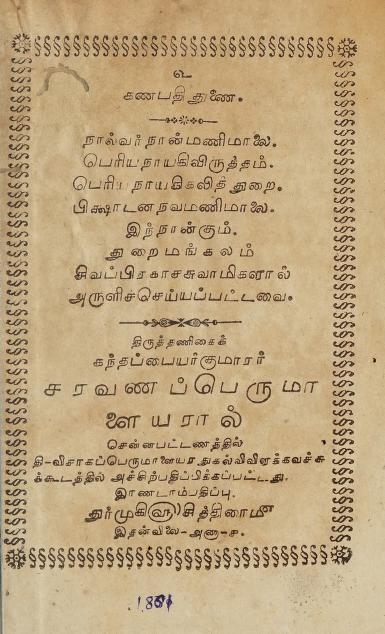 உ
கணபதி துணை.
நால்வர் நான்மணிமாலை.
பெரியநாயகிவிருத்தம்.
பெரியநாயகிகலித்துறை.
பிக்ஷாடனநவமணிமாலை.
இந்நான்கும்.
துறைமங்கலம்
சிவப்பிரகாசசுவாமிகளால்
அருளிச்செய்யப்பட்டவை.
திருத்தணிகைக்
கந்தப்பையர்குமாரர்
சரவணப்பெருமா
ளையரால்
சென்னபட்டணத்தில்
தி-விசாகப்பெருமாளையரதுகல்விவிளக்கவச்சு
க்கூடத்தில் அச்சிற்பதிப்பிக்கப்பட்டது.
இரண்டாம்பதிப்பு.
துர்முகி௵சித்திரை௴
இதன்விலை-அணா-௪.